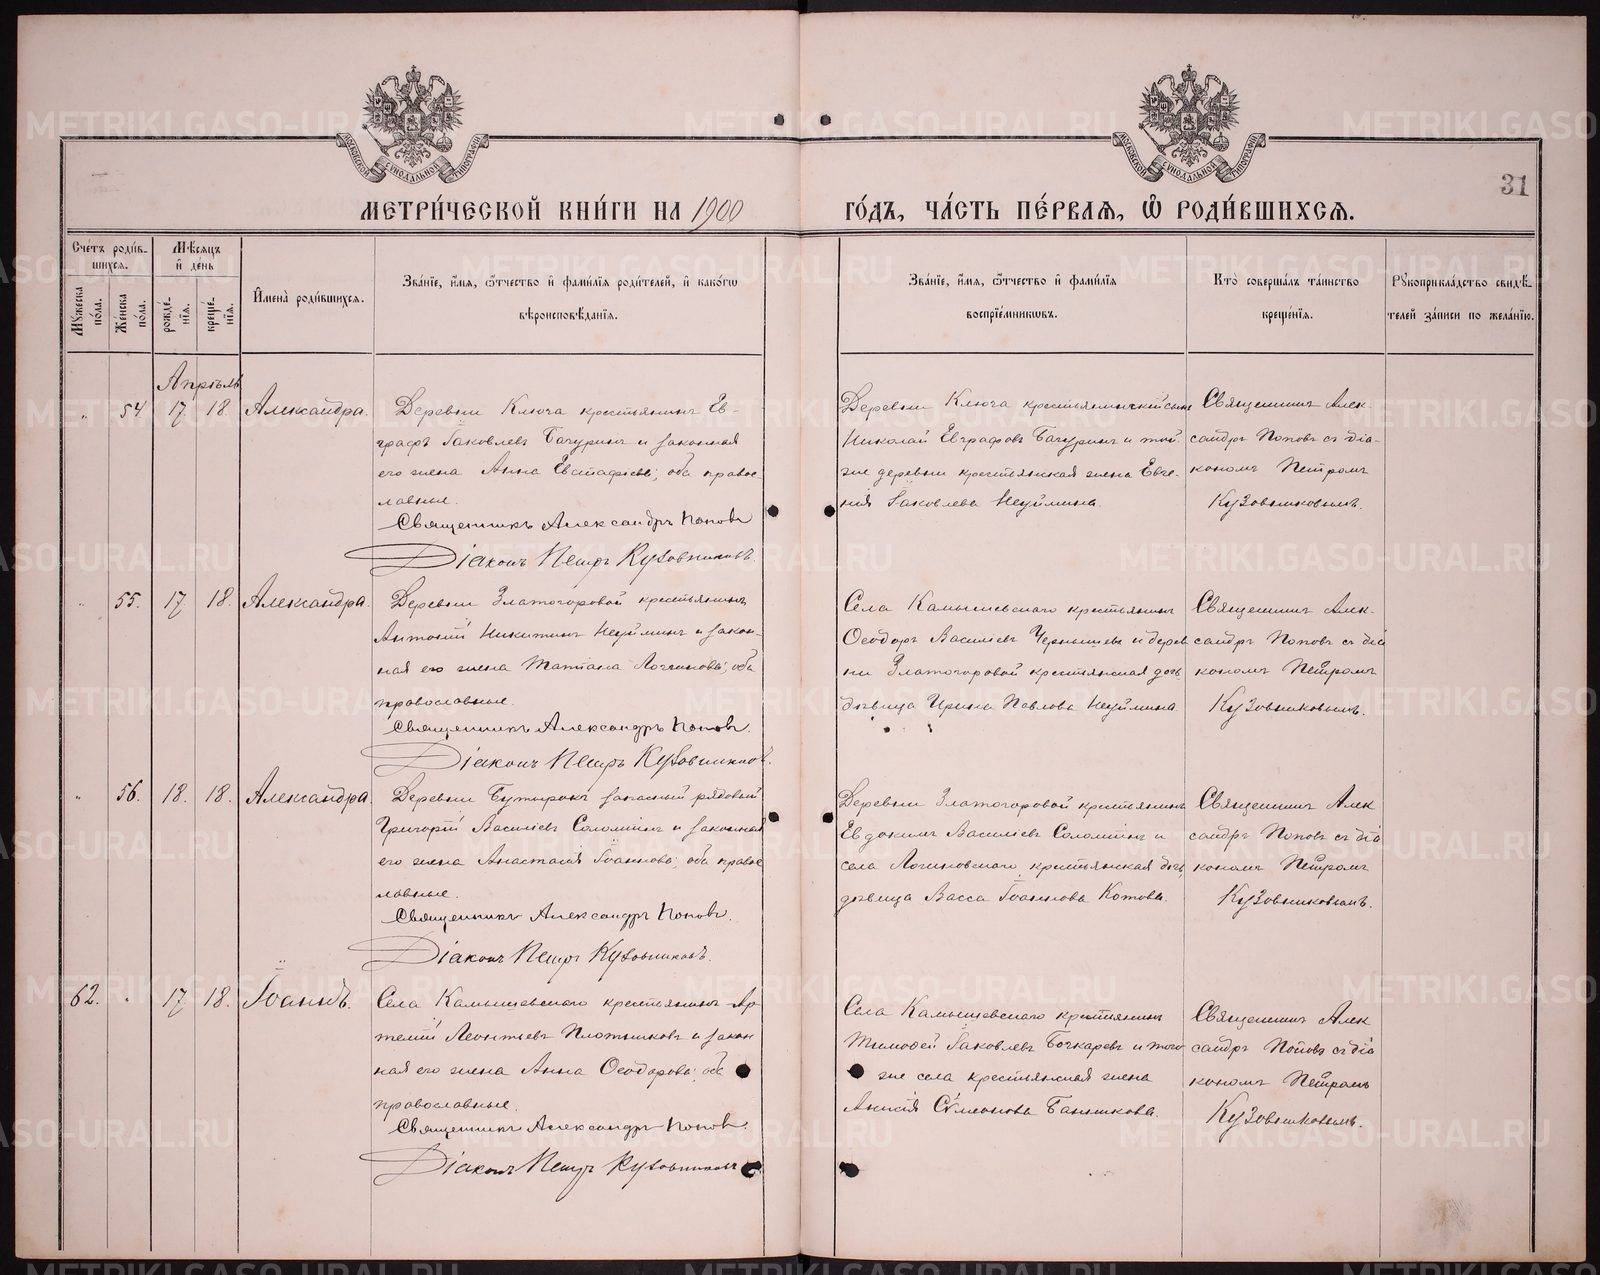 31
МЕТРИ́ЧЕСКОЙ КНИ́ГИ НА 1900 ГО́ДЪ, ЧА́СТЬ ПЕ́РВАЯ, Ѡ҆ РОДИ́ВШИХСЯ.
МОСКОВСКОЙ СѴНОДАЛЬНОЙ ТИПОГРАФІИ
МОСКОВСКОЙ СѴНОДАЛЬНОЙ ТИПОГРАФІИ
Сче́тъ роди́вшихся.
Мꙋ́жеска по́ла.
Же́нска по́ла.
Мѣ́сяцъ и҆ де́нь
рожде́нїя.
креще́нїя.
И҆мена̀ роди́вшихся.
Зва́нїе, и҆́мя, ѻ҆́тчество и҆ фами́лїя роди́телей, и҆ како́гѡ
вѣроисповѣ́данїя.
Зва́нїе, и҆́мя, ѻ҆́тчество и҆ фами́лїя
воспрїе́мникѡвъ.
Кто̀ соверша́лъ та́инство
креще́нїя.
Рꙋкоприкла́дство свидѣ́телей за́писи по жела́нїю.
Апрѣль
" 54 17. 18. Александра.
Деревни Ключа крестьянинъ Ев-
графъ Іаковлевъ Бачуринъ и законная
его жена Анна Евстафіева; оба правос-
лавные.
Священникъ Александръ Поповъ
Діаконъ Петръ Кузовниковъ.
Деревни Ключа крестьянскій сынъ
Николай Евграфовъ Бачуринъ и той
же деревни крестьянская жена Евге-
нія Іаковлева Неуймина.
Священникъ Алек
сандръ Поповъ съ діа-
кономъ Петромъ
Кузовниковымъ.
" 55. 17. 18. Александра.
Деревни Златогоровой крестьянинъ
Антоній Никитинъ Неуйминъ и закон-
ная его жена Татіана Логгинова; оба
православные.
Священникъ Александръ Поповъ.
Діаконъ Петръ Кузовниковъ.
Села Камышевскаго крестьянинъ
Ѳеодоръ Василіевъ Чернышевъ и дерев
ни Златогоровой крестьянская дочь
дѣвица Ирина Павлова Неуймина.
Священникъ Алек-
сандръ Поповъ съ діа
кономъ Петромъ
Кузовниковымъ.
" 56. 18. 18. Александра.
Деревни Бутырокъ запасный рядовый
Григорій Василіевъ Соломеинъ и законная
его жена Анастасія Іоаннова; оба правос
лавные.
Священникъ Александръ Поповъ.
Діаконъ Петръ Кузовниковъ.
Деревни Златогоровой крестьянинъ
Евдокимъ Василіевъ Соломеинъ и
села Логиновскаго крестьянская дочь
дѣвица Васса Іоаннова Котова.
Священникъ Алек
сандръ Поповъ съ діа
кономъ Петромъ
Кузовниковымъ.
62. " 17 18. Іоаннъ.
Села Камышевскаго крестьянинъ Ар-
темій Леонтьевъ Плотниковъ и закон
ная его жена Анна Ѳеодорова; оба
православные.
Священникъ Александръ Поповъ.
Діаконъ Петръ Кузовниковъ
Села Камышевскаго крестьянинъ
Тимоѳей Іаковлевъ Бочкаревъ и того
же села крестьянская жена
Анисія Сѵмеонова Банникова.
Священникъ Алек
сандръ Поповъ съ діа
кономъ Петромъ
Кузовниковымъ.
METRIKI.GASO-URAL.RU